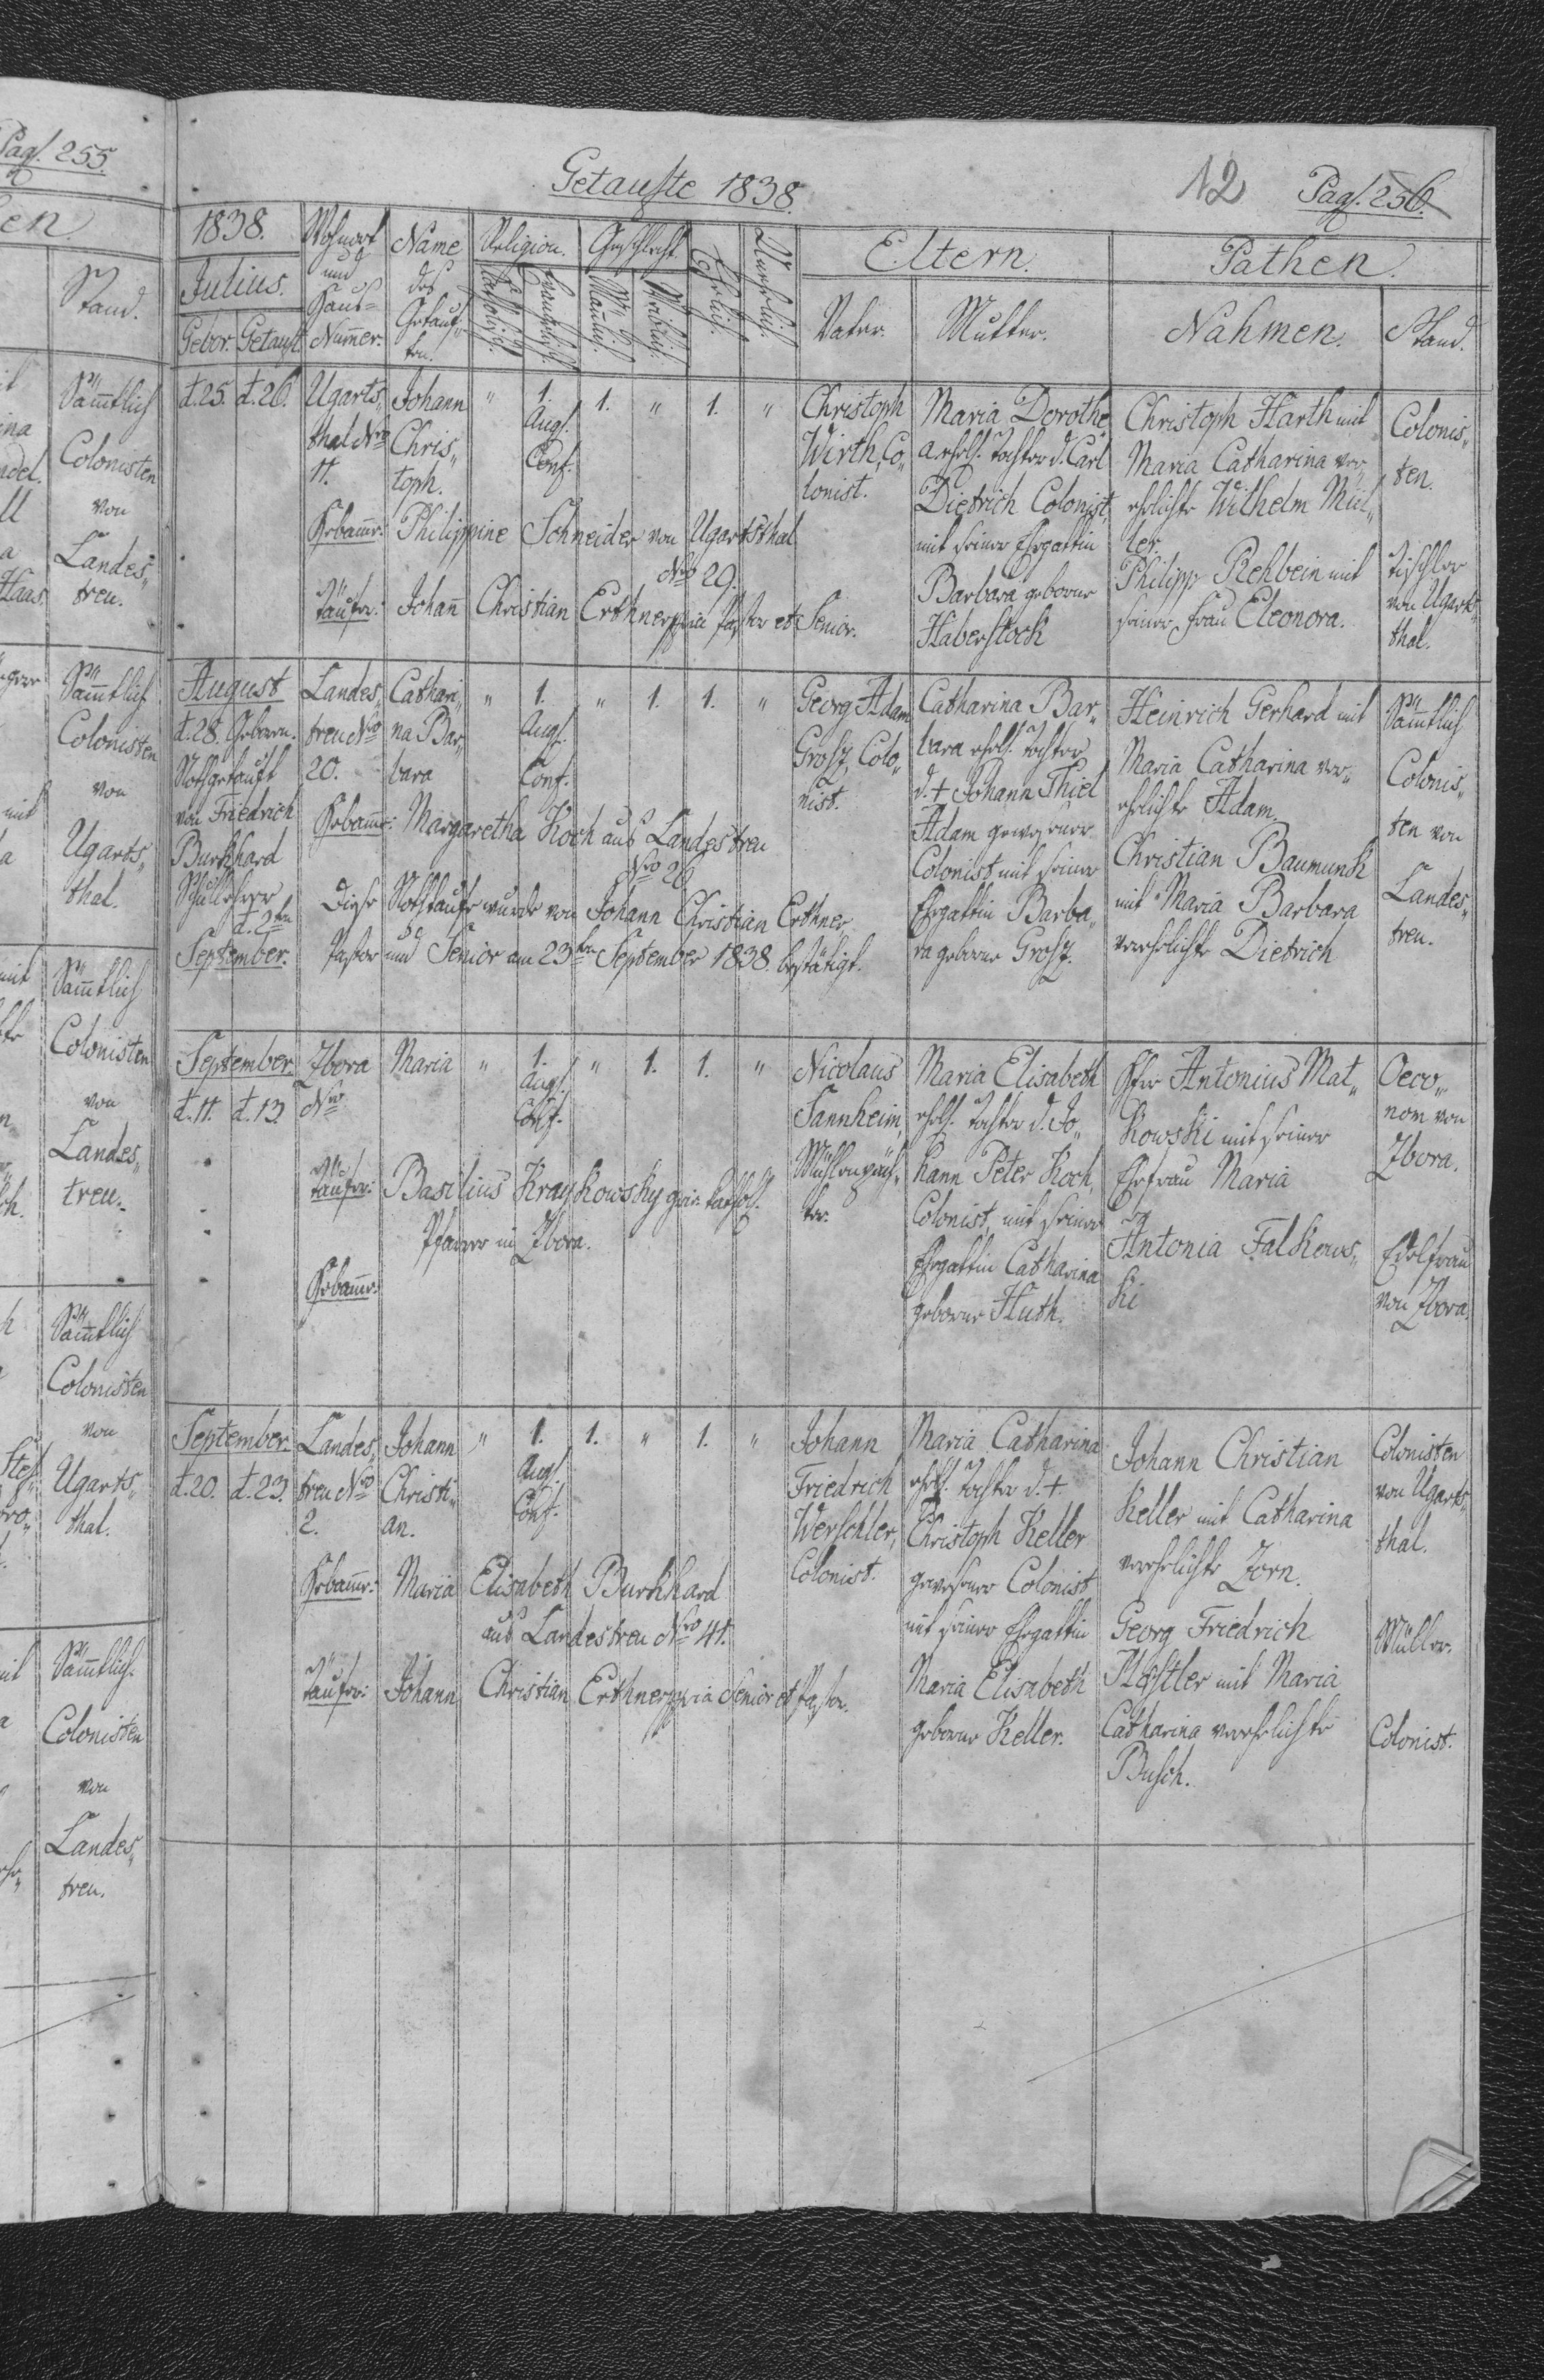 Pag. 255.
en.
Stand.
Sämtlich
Colonisten
von
Landes„
treu.
Sämtlich
Colonisten
von
Ugarts„
thal.
Sämtlich
Colonisten
von
Landes„
treu.
Sämtlich
Colonisten
von
Ugarts„
thal.
Sämtlich
Colonisten
von
Landes„
treu.
Getaufte 1838.
12
Pag. 256.
1838.
Julius.
Gebor. Getauft
Wohnort
und
Haus=
Numer.
Name
des
Getauf„
ten.
Religion.
Katholisch.
Evangelisch.
Geschlecht.
Mänlich.
Weiblich.
Ehelich.
Unehelich.
Eltern.
Vater.
Mutter.
Pathen.
Nahmen.
Stand.
d. 25. d. 26.
Ugarts„
thal Nro
11.
Johann
Chris„
toph.
" 1. 1. " 1. "
Augs.
Conf.
Christoph
Wirth, Co„
lonist.
Maria Dorothe
a ehel. Tochter d. Carl
Dietrich Colonist,
mit seiner Ehegattin
Barbara geborne
Haberstock
Christoph Harth mit
Maria Catharina ver„
ehelichte Wilhelm Mül„
ler.
Philipp Rehbein mit
seiner Frau Eleonora.
Colonis„
ten.
Tischler
von Ugarts„
thal.
Hebamme: Philippine Schneider von Ugartsthal
Nro 29.
Täufer: Johann Christian Erthner Pastor et Senior.
August
d. 28. Geboren.
Nothgetauft
von Friedrich
Burkhard
Schullehrer
d. 2ten
September.
Landes„
treu Nro
20.
Cathari„
na Bar„
bara
" 1. " 1. 1. "
Augs.
Conf.
Georg Adam
Grosz, Colo„
nist.
Catharina Bar„
bara ehel. Tochter
d. + Johann Thiel
Adam gewesener
Colonist mit seiner
Ehegattin Barba„
ra geborne Grosz.
Heinrich Gerhard mit
Maria Catharina ver„
ehelichte Adam.
Christian Baumunk
mit Maria Barbara
verehelichte Dietrich
Sämtlich
Colonis„
ten von
Landes„
treu.
Hebamme: Margaretha Koch aus Landestreu
Nro 26.
Diese Nothtaufe wurde von Johann Christian Erthner,
Pastor und Senior am 23ten September 1838. bestätigt.
September.
d. 11. d. 13.
Zbora
Nro
Maria
" 1. " 1. 1. "
Augs.
Conf.
Nicolaus
Sannheim,
Mühlenpäch„
ter.
Maria Elisabeth
ehel. Tochter d. Jo„
hann Peter Koch,
Colonist, mit seiner
Ehegattin Catharina
geborne Huth.
Herr Antonius Mat„
kowski mit seiner
Ehefrau Maria
Antonia Falkows„
ki
Oeco„
nom von
Zbora.
Edelfrau
von Zbora.
Täufer: Basilius Kraykowsky griech. kathol.
Pfarrer in Zbora.
Hebamme:
September.
d. 20. d. 23.
Landes„
treu Nro
2.
Johann
Christi„
an.
" 1. 1. " 1. "
Augs.
Conf.
Johann
Friedrich
Werschler,
Colonist.
Maria Catharina
ehel. Tochter d. +
Christoph Keller
gewesener Colonist
mit seiner Ehegattin
Maria Elisabeth
geborne Keller.
Johann Christian
Keller mit Catharina
verehelichte Zorn.
Georg Friedrich
Maria
Catharina verehelichte
Busch.
Colonisten
von Ugarts„
thal.
Müller.
Colonist.
Hebamme: Maria Elisabeth Burkhard
aus Landestreu Nro 41.
Täufer: Johann Christian Erthner Senior et Pastor.